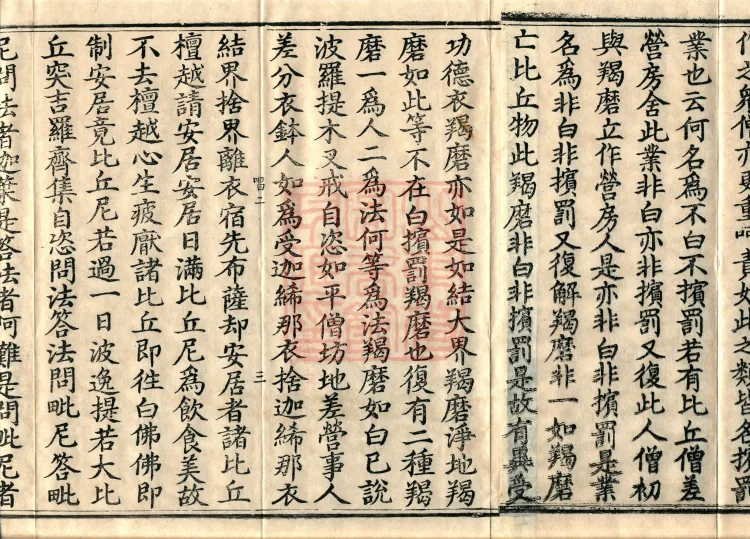 作之衆僧亦更重呵責如此之類皆名擯罰
業也云何名爲不白不擯罰若有比丘僧差
營房舍此業非白亦非擯罰又復此人僧初
與羯磨立作營房人是亦非白非擯罰是業
名爲非白非擯罰又復解羯磨非一如羯磨
亡比丘物此羯磨非白非擯罰是故有異受
功德衣羯磨亦如是如結大界羯磨淨地羯
磨如此等不在白擯罰羯磨也復有二種羯
磨一爲人二爲法何等爲法羯磨如白已說
波羅提木叉戒自恣如平僧坊地差營事人
差分衣鉢人如爲受迦絺那衣捨迦絺那衣
唱二 三
結界捨界離衣宿先布薩却安居者諸比丘
檀越請安居安居日滿比丘尼爲飲食美故
不去檀越心生疲厭諸比丘即徃白佛佛即
制安居竟比丘尼若過一日波逸提若大比
丘突吉羅齊集自恣問法答法問毗尼答毗
尼問法者迦葉是答法者阿難是問毗尼者